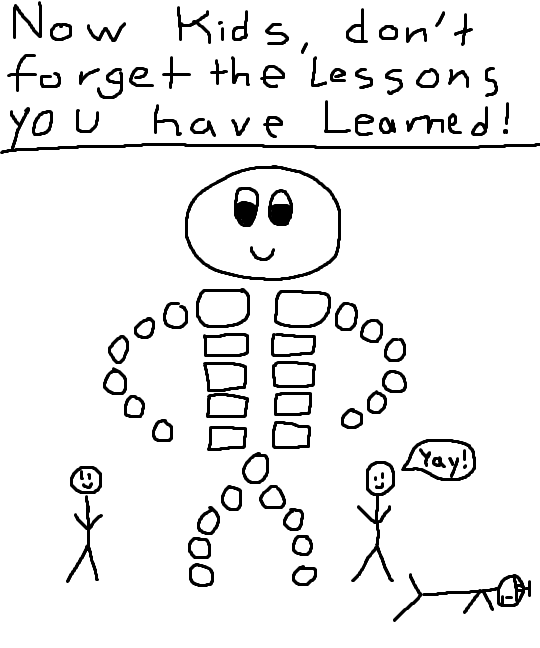 Now Kids, don't
forget the Lessons
you have Learned!
Yay!